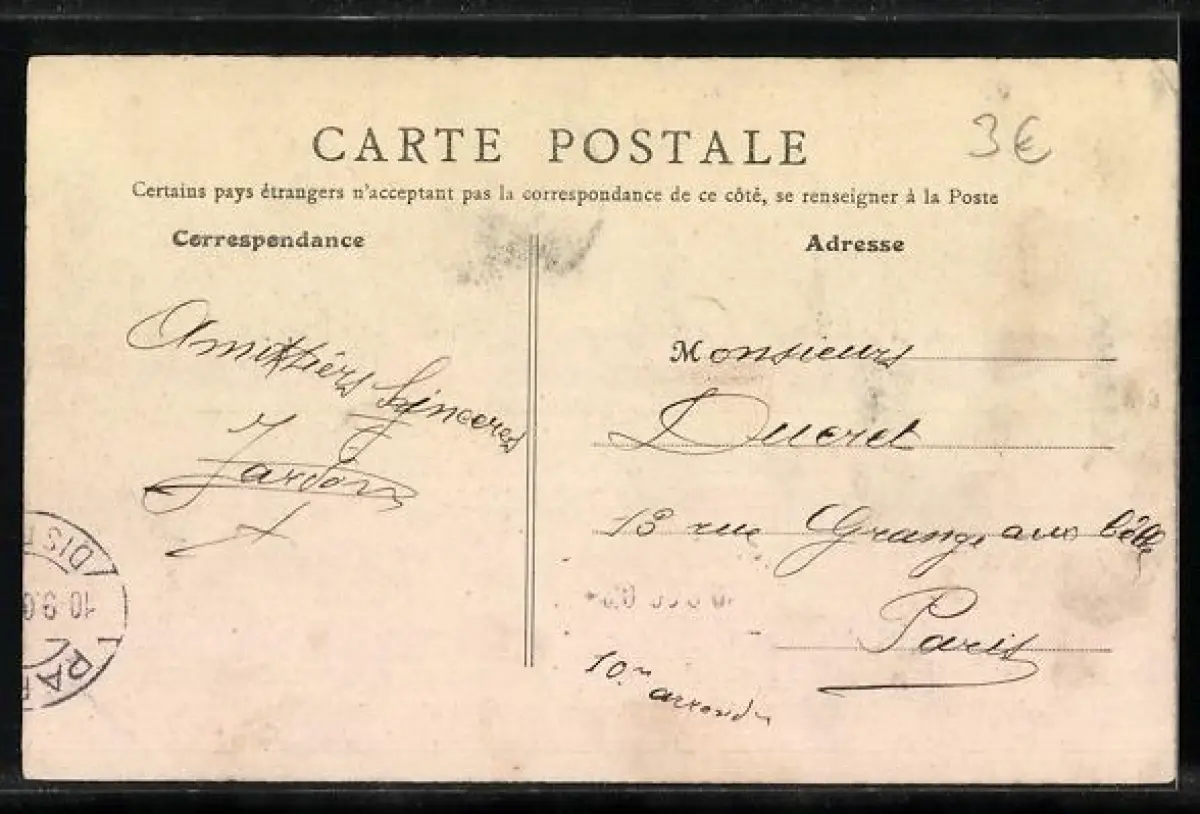 CARTE POSTALE
3€
Certains pays étrangers n'acceptant pas la correspondance de ce côté, se renseigner à la Poste
Correspondance
Adresse
Amittiérs Sinceres
Monsieurs
Ducret
13 rue Grange aux bêlle
Paris
10m arrond
DIST
10 9 0
PAR